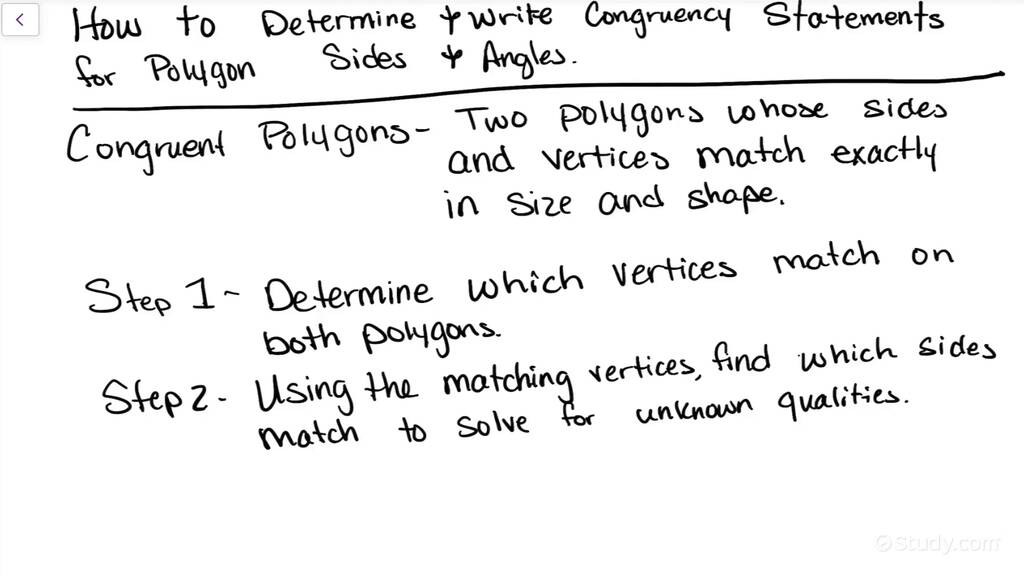 How to Determine & Write Congruency Statements
for Polygon Sides & Angles.
Congruent Polygons- Two polygons whose sides
and vertices match exactly
in size and shape.
Step 1- Determine which vertices match on
both polygons.
Step 2- Using the matching vertices, find which sides
match to solve for unknown qualities.
Study.com